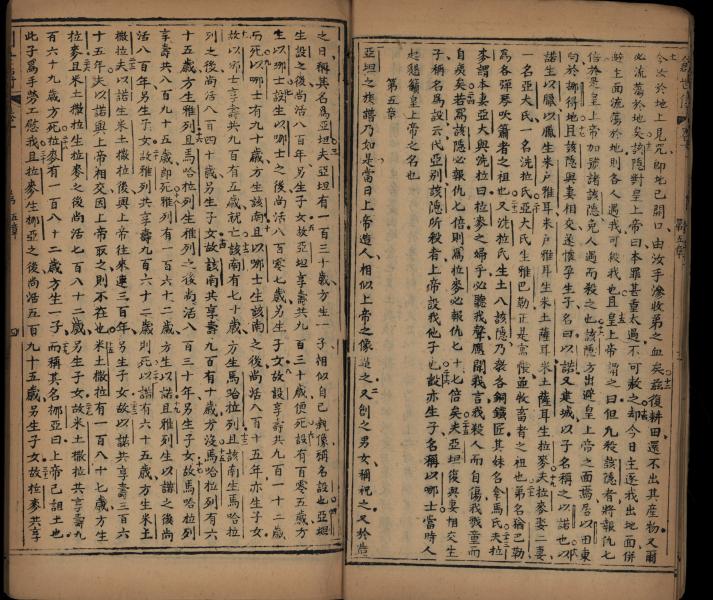 今汝於地上見咒即地已開口由汝手滲收弟之血矣茲復耕田還不出其產物又爾
必流蕩於地矣該隱對皇上帝曰本罪甚重太過不可赦之却今日主逐我出地面併
避主面流蕩於地則各人遇我可殺我也且皇上帝謂之曰但凡殺該隱者將報仇七
倍於是皇上帝加號諸該隱免人遇而殺之也該隱方出避皇上帝之面焉居以田東
向於挪得地且該隱與妻相交遂懷孕生子名曰以諾又建城以子名稱之以諾也
諾生以臘以臘生米户雅耳米户雅耳生米土薩耳米土薩耳生拉麥夫拉麥娶二妻
一名亞大氏一名洗拉氏亞大氏生雅巴勒正是寓帳牧畜者之祖也弟名猶巴勒
為各彈琴吹簫者之祖也又洗拉氏生土八該隱乃教各銅鐵匠其妹名拿馬氏夫拉
麥謂本妻亞大與洗拉曰拉麥之婦乎必聽我聲應聞我言我殺人而自傷我戮童而
自痍矣若為該隱必報仇七倍則為拉麥必報仇七十七倍矣夫亞坦復與妻相交生
子稱名為設云代亞別該隱所殺者上帝設我他子也設亦生子名稱以哪士當時人
起籲皇上帝之名也
第五章
亞坦之族譜乃如是當日上帝造人相似上帝之像造之又創之男女稱祝之又於造
之日稱其名為亞坦夫亞坦有一百三十歲方生一子相似自己貌像稱名設也亞坦
生設之後尚活八百年另生子女故亞坦享壽共九百三十歲便死設有百零五歲方
生以哪士設生以哪士之後尚活八百零七歲另生子女故設享壽共九百一十二歲
而死以哪士有九十歲方生該南且以哪士生該南之後尚活八百十五年亦生子女
故以哪士享壽共九百有五歲就亡該南有七十歲方生馬哈拉列且該南生馬哈拉
列之後尚活八百四十歲另生子女故該南共享壽九百有十歲方沒馬哈拉列有六
十五歲方生雅列且馬哈拉列生雅列之後尚活八百三十年另生子女故馬哈拉列
享壽共八百九十五歲即死雅列有一百六十二歲方生以諾且雅列生以諾之後尚
活八百年另生子女故雅列共享壽九百六十二歲則死以諾有六十五歲方生米土
撒拉夫以諾生米土撒拉後與上帝往來運三百年另生子女故以諾共享壽三百六
十五年夫以諾與上帝相交因上帝取之則不在也米土撒拉有一百八十七歲方生
拉麥且米土撒拉生拉麥之後尚活七百八十二歲另生子女故米土撒拉共享壽九
百六十九歲方死拉麥有一百八十二歲方生一子而稱其名挪亞曰上帝已詛土也
此子爲手勞工慰我且拉麥生挪亞之後尚活五百九十五歲另生子女故拉麥共享
第五章
四